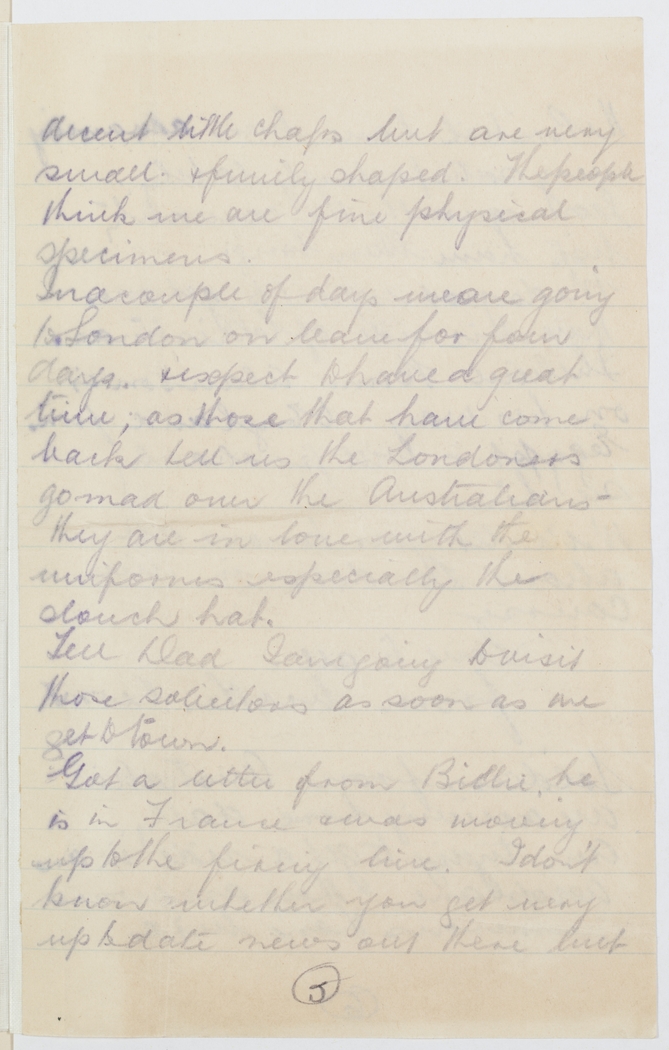 decent little chaps but are very
small. & funily shaped. The people
think we are fine physical
specimens.
In a couple of days we are going
to London on leave for four
days. & expect to have a great
time, as those that have come
back tell us the Londoners
go mad over the Australians -
they are in love with the
uniforms especially the
slouch hat.
Tell Dad I am going to visit
those solicitors as soon as we
get to town.
Got a letter from Billie, he
is in France & was moving
up to the firing line. I don't
know whether you get very
up to date news out there but
5